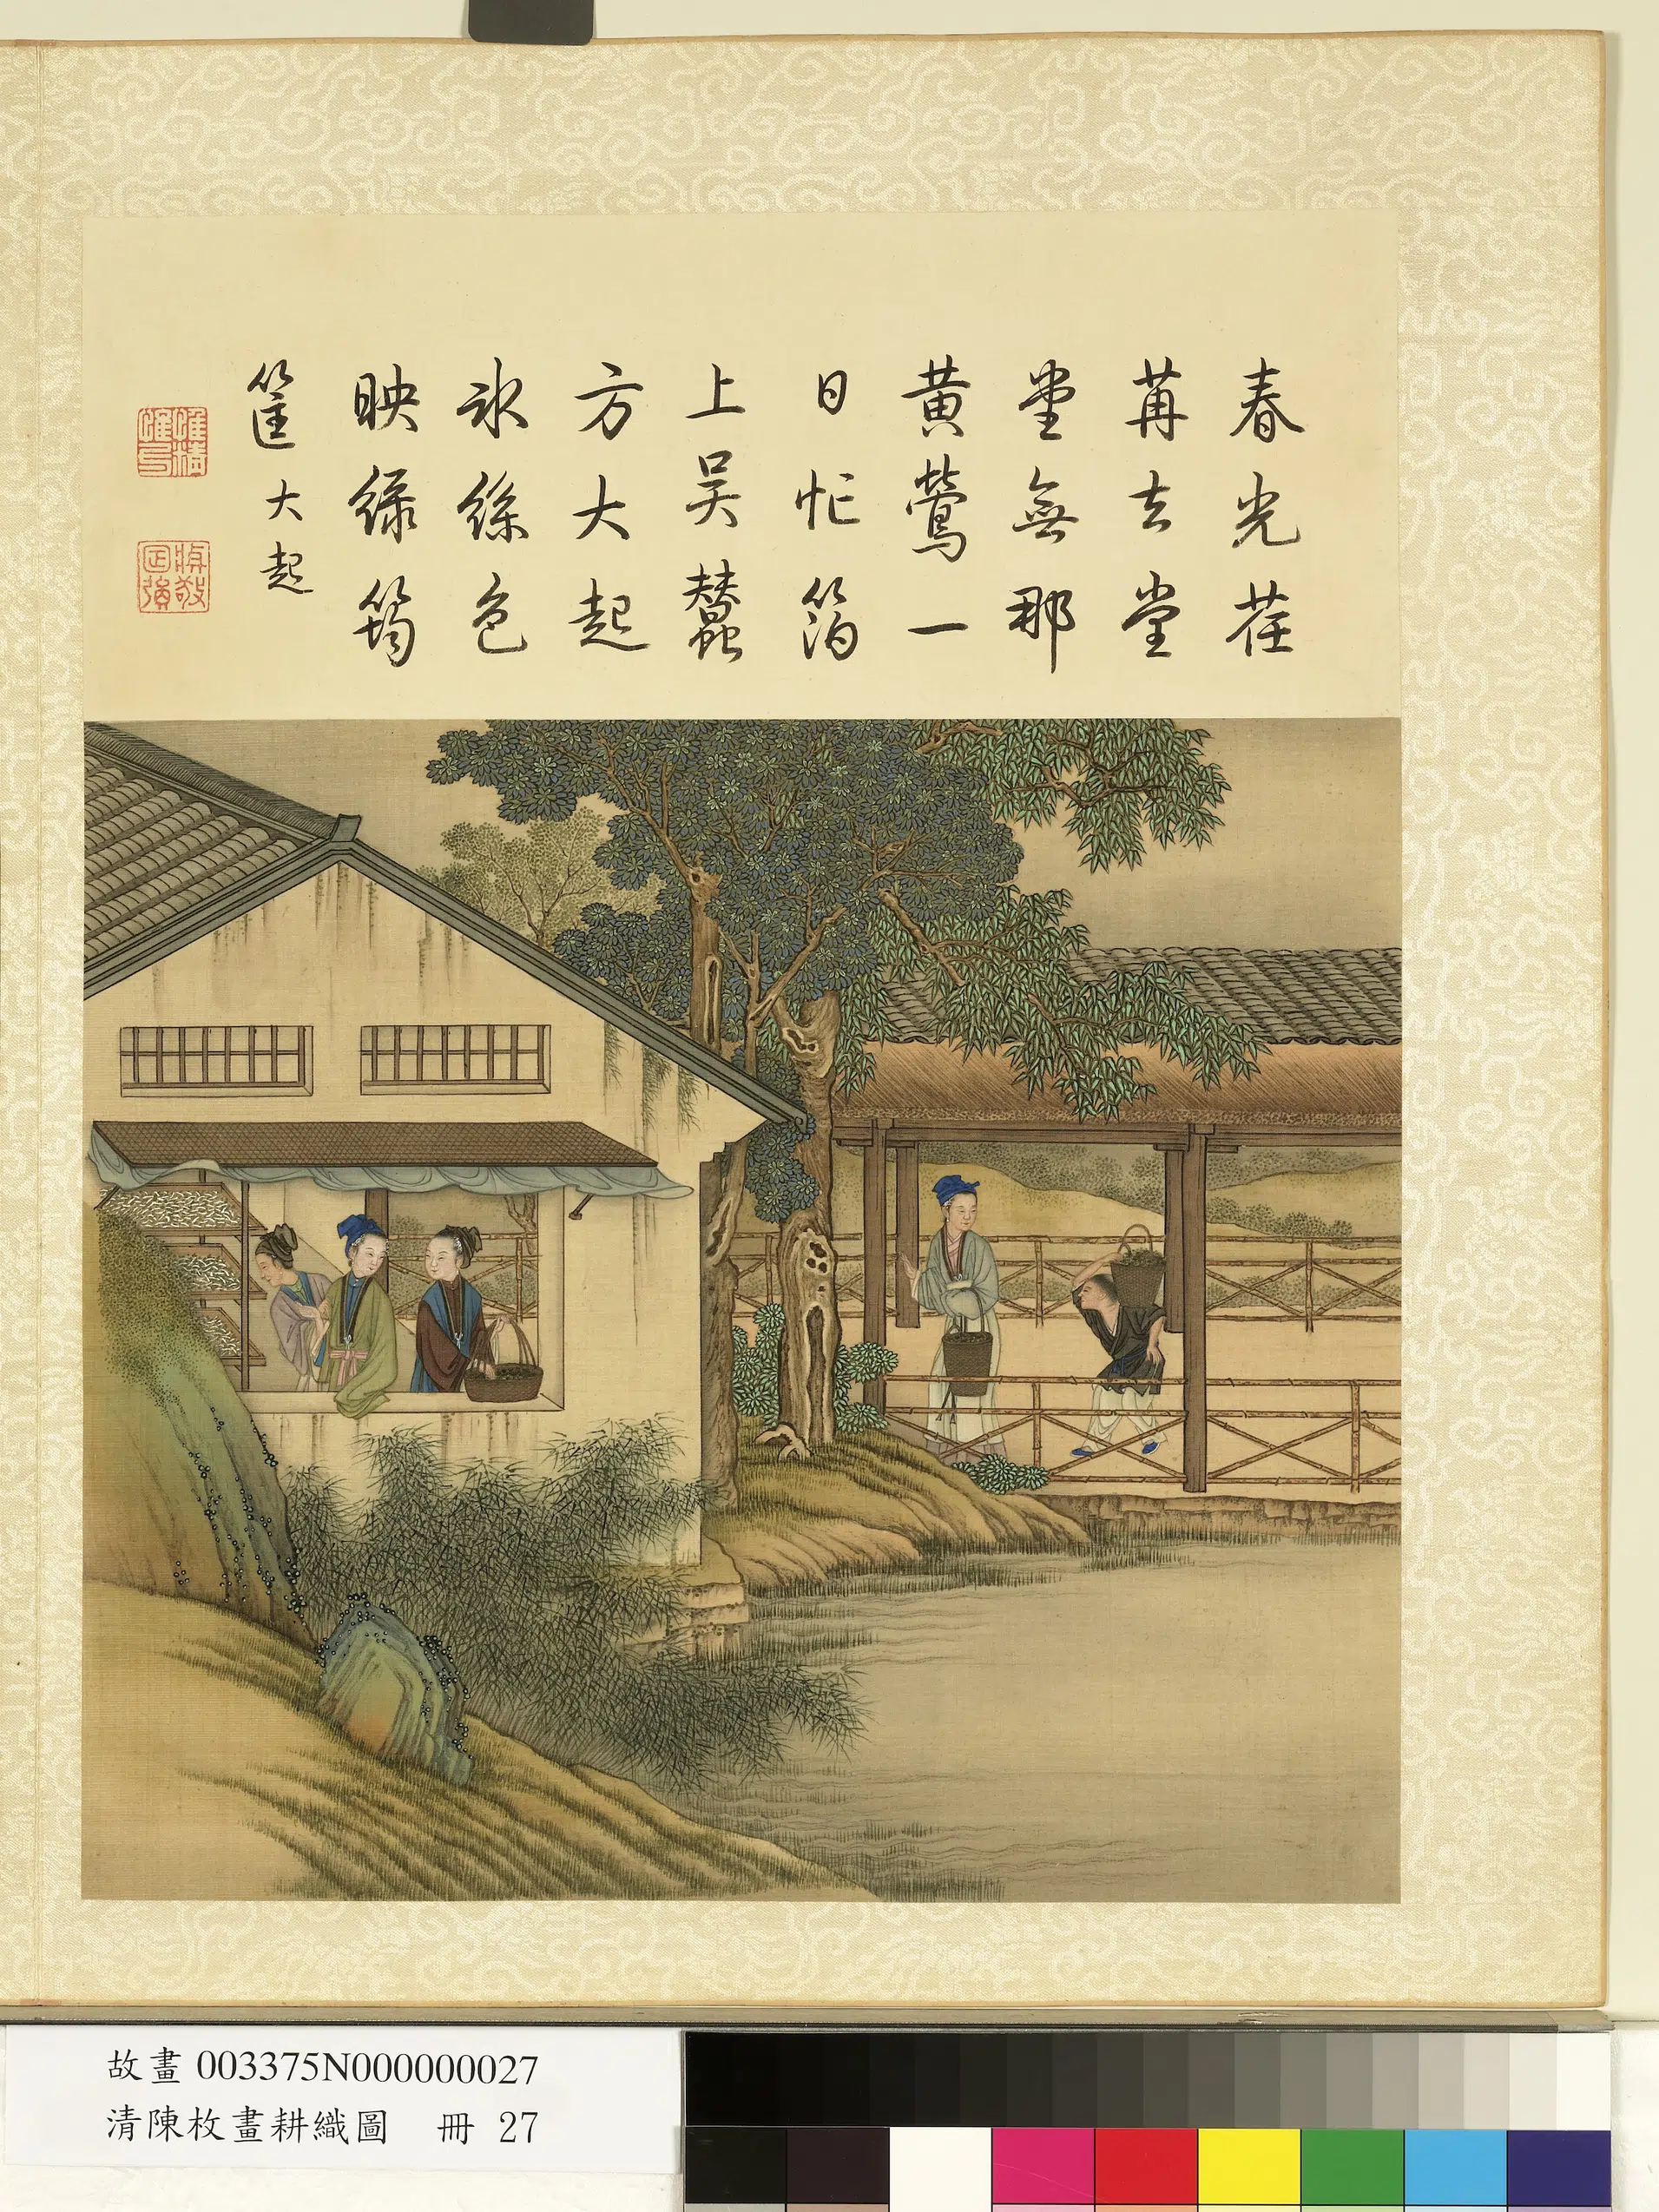 春光荏
苒去堂
堂無那
黃鶯一
日忙箔
上吳蠶
方大起
冰絲色
映綠筠
筐 大起
故畫 003375N000000027
清陳枚畫耕織圖 冊 27